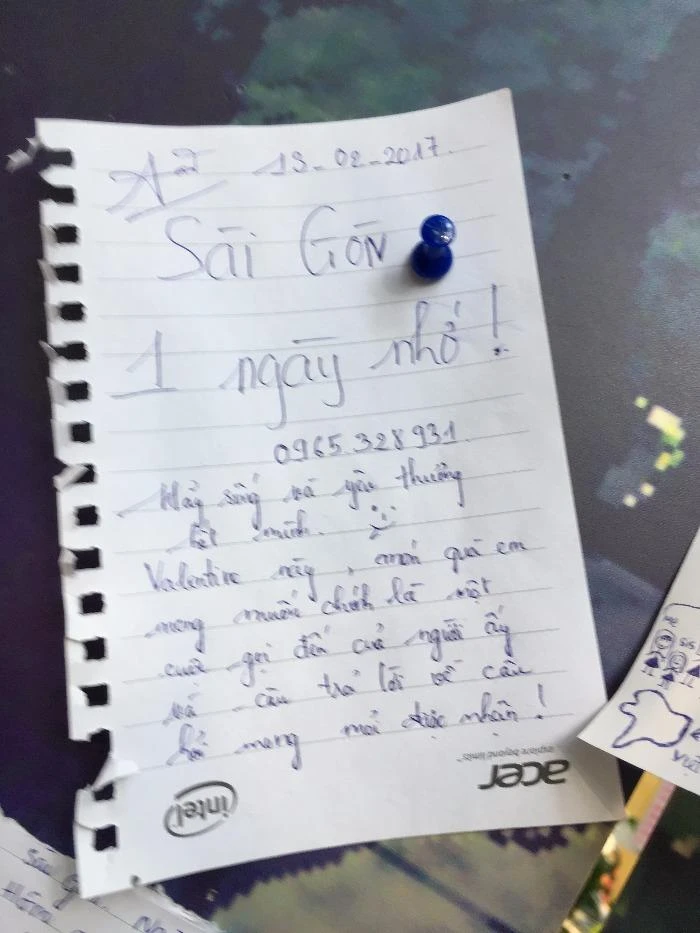 13-02-2017.
Sài Gòn
1 ngày nhớ!
0965.328931.
Hãy sống và yêu thương
hết mình.
Valentine này, món quà em
mong muốn chính là một
cuộc gọi đến của người ấy
và câu trả lời về câu
hỏi mong mỏi được nhận!
acer
explore beyond limits™
intel
MẸ
SIS
Sài